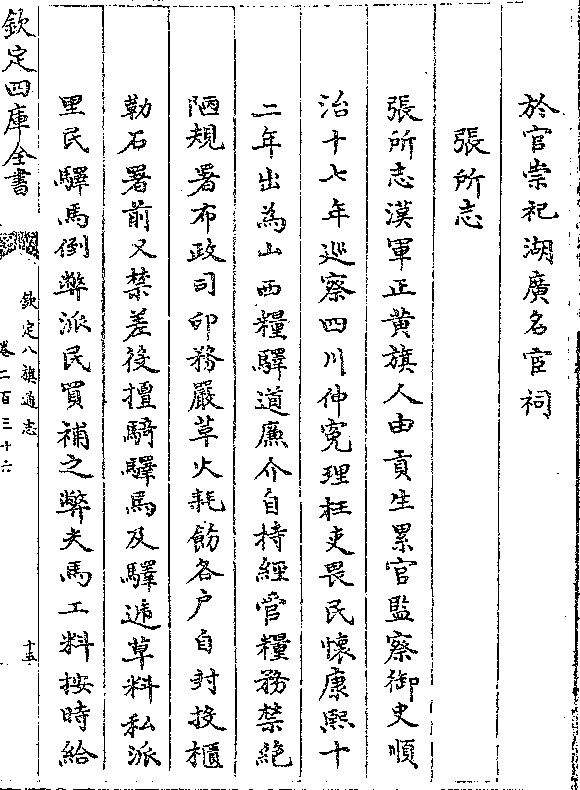 於官崇祀湖廣名宦祠
張所志
張所志漢軍正黄旗人由貢生累官監察御史順
治十七年巡察四川伸寃理枉吏畏民懷康熙十
二年出為山西糧驛道廉介自持經管糧務禁絶
陋規署布政司印務嚴革火耗飭各户自封投櫃
勒石署前又禁差役擅騎驛馬及驛遞草料私派
里民驛馬倒斃派民買補之弊夫馬工料按時給
欽定四庫全書
欽定八旗通志
卷二百三十六
十五